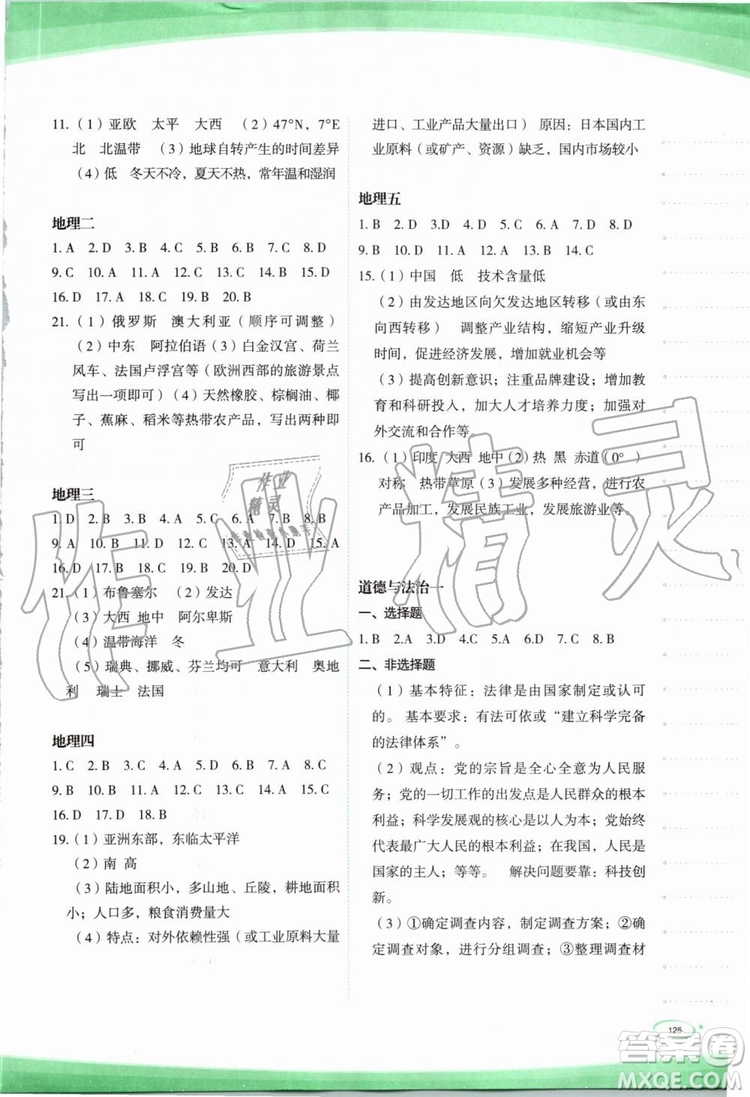 11.（1）亚欧　太平　大西　（2）47°N，7°E
北　北温带　（3）地球自转产生的时间差异
（4）低　冬天不冷，夏天不热，常年温和湿润
地理二
1. A　2. D　3. B　4. C　5. B　6. B　7. B　8. D
9. C　10. A　11. D　12. A　13. C　14. A　15. C
16. D　17. D　18. C　19. B　20. B
21.（1）俄罗斯　澳大利亚（顺序可调整）
（2）中东　阿拉伯语（3）白金汉宫、荷兰
风车、法国卢浮宫等（欧洲西部的旅游景点
写出一项即可）（4）天然橡胶、棕榈油、椰
子、蕉麻、稻米等热带农产品，写出两种即
可
地理三
1. D　2. B　3. B　4. A　5. C　6. C　7. B　8. D
9. C　10. A　11. C　12. C　13. D　14. D　15. A
16. D　17. D　18. C　19. B　20. D
21.（1）布鲁塞尔　（2）发达
（3）大西　地中　阿尔卑斯
（4）温带海洋　冬
（5）瑞典、挪威、芬兰均可　意大利　奥地
利　瑞士　法国
地理四
1. C　2. B　3. C　4. D　5. A　6. C　7. B　8. D
9. B　10. A　11. D　12. B　13. B　14. A　15. A
16. D　17. D　18. B
19.（1）亚洲东部，东临太平洋
（2）南 高
（3）陆地面积小，多山地、丘陵，耕地面积
小；人口多，粮食消费量大
（4）特点：对外依赖性强（或工业原料大量
进口、工业产品大量出口） 原因：日本国内工
业原料（或矿产、资源）缺乏，国内市场较小
地理五
1. B　2. D　3. D　4. A　5. D　6. A　7. D　8. D
9. B　10. A　11. B　12. A　13. B　14. C
15.（1）中国　低　技术含量低
（2）由发达地区向欠发达地区转移（或由东
向西转移）　调整产业结构，缩短产业升级
时间，促进经济发展，增加就业机会等
（3）提高创新意识；注重品牌建设；增加教
育和科研投入，加大人才培养力度；加强对
外交流和合作等。
16.（1）印度 大西 地中（2）热 黑 赤道（0° ）
对称　热带草原（3）发展多种经营，进行农
产品加工，发展民族工业，发展旅游业等。
道德与法治一
一、选择题
1. B　2.A　3.D　4.C　5.B　6. D　7. C　8. B
二、非选择题
（1）基本特征：法律是由国家制定或认可
的。 基本要求：有法可依或“建立科学完备
的法律体系”。
（2）观点：党的宗旨是全心全意为人民服
务；党一切工作的出发点是人民群众的根本
利益；科学发展观的核心是以人为本；党始终
代表最广大人民的根本利益；在我国，人民是
国家的主人；等等。　解决问题要靠：科技创
新。
（3）①确定调查内容，制定调查方案；②确
定调查对象，进行分组调查；③整理调查材
125
作业精灵
作业
精灵
答案圈
MXQE.COM